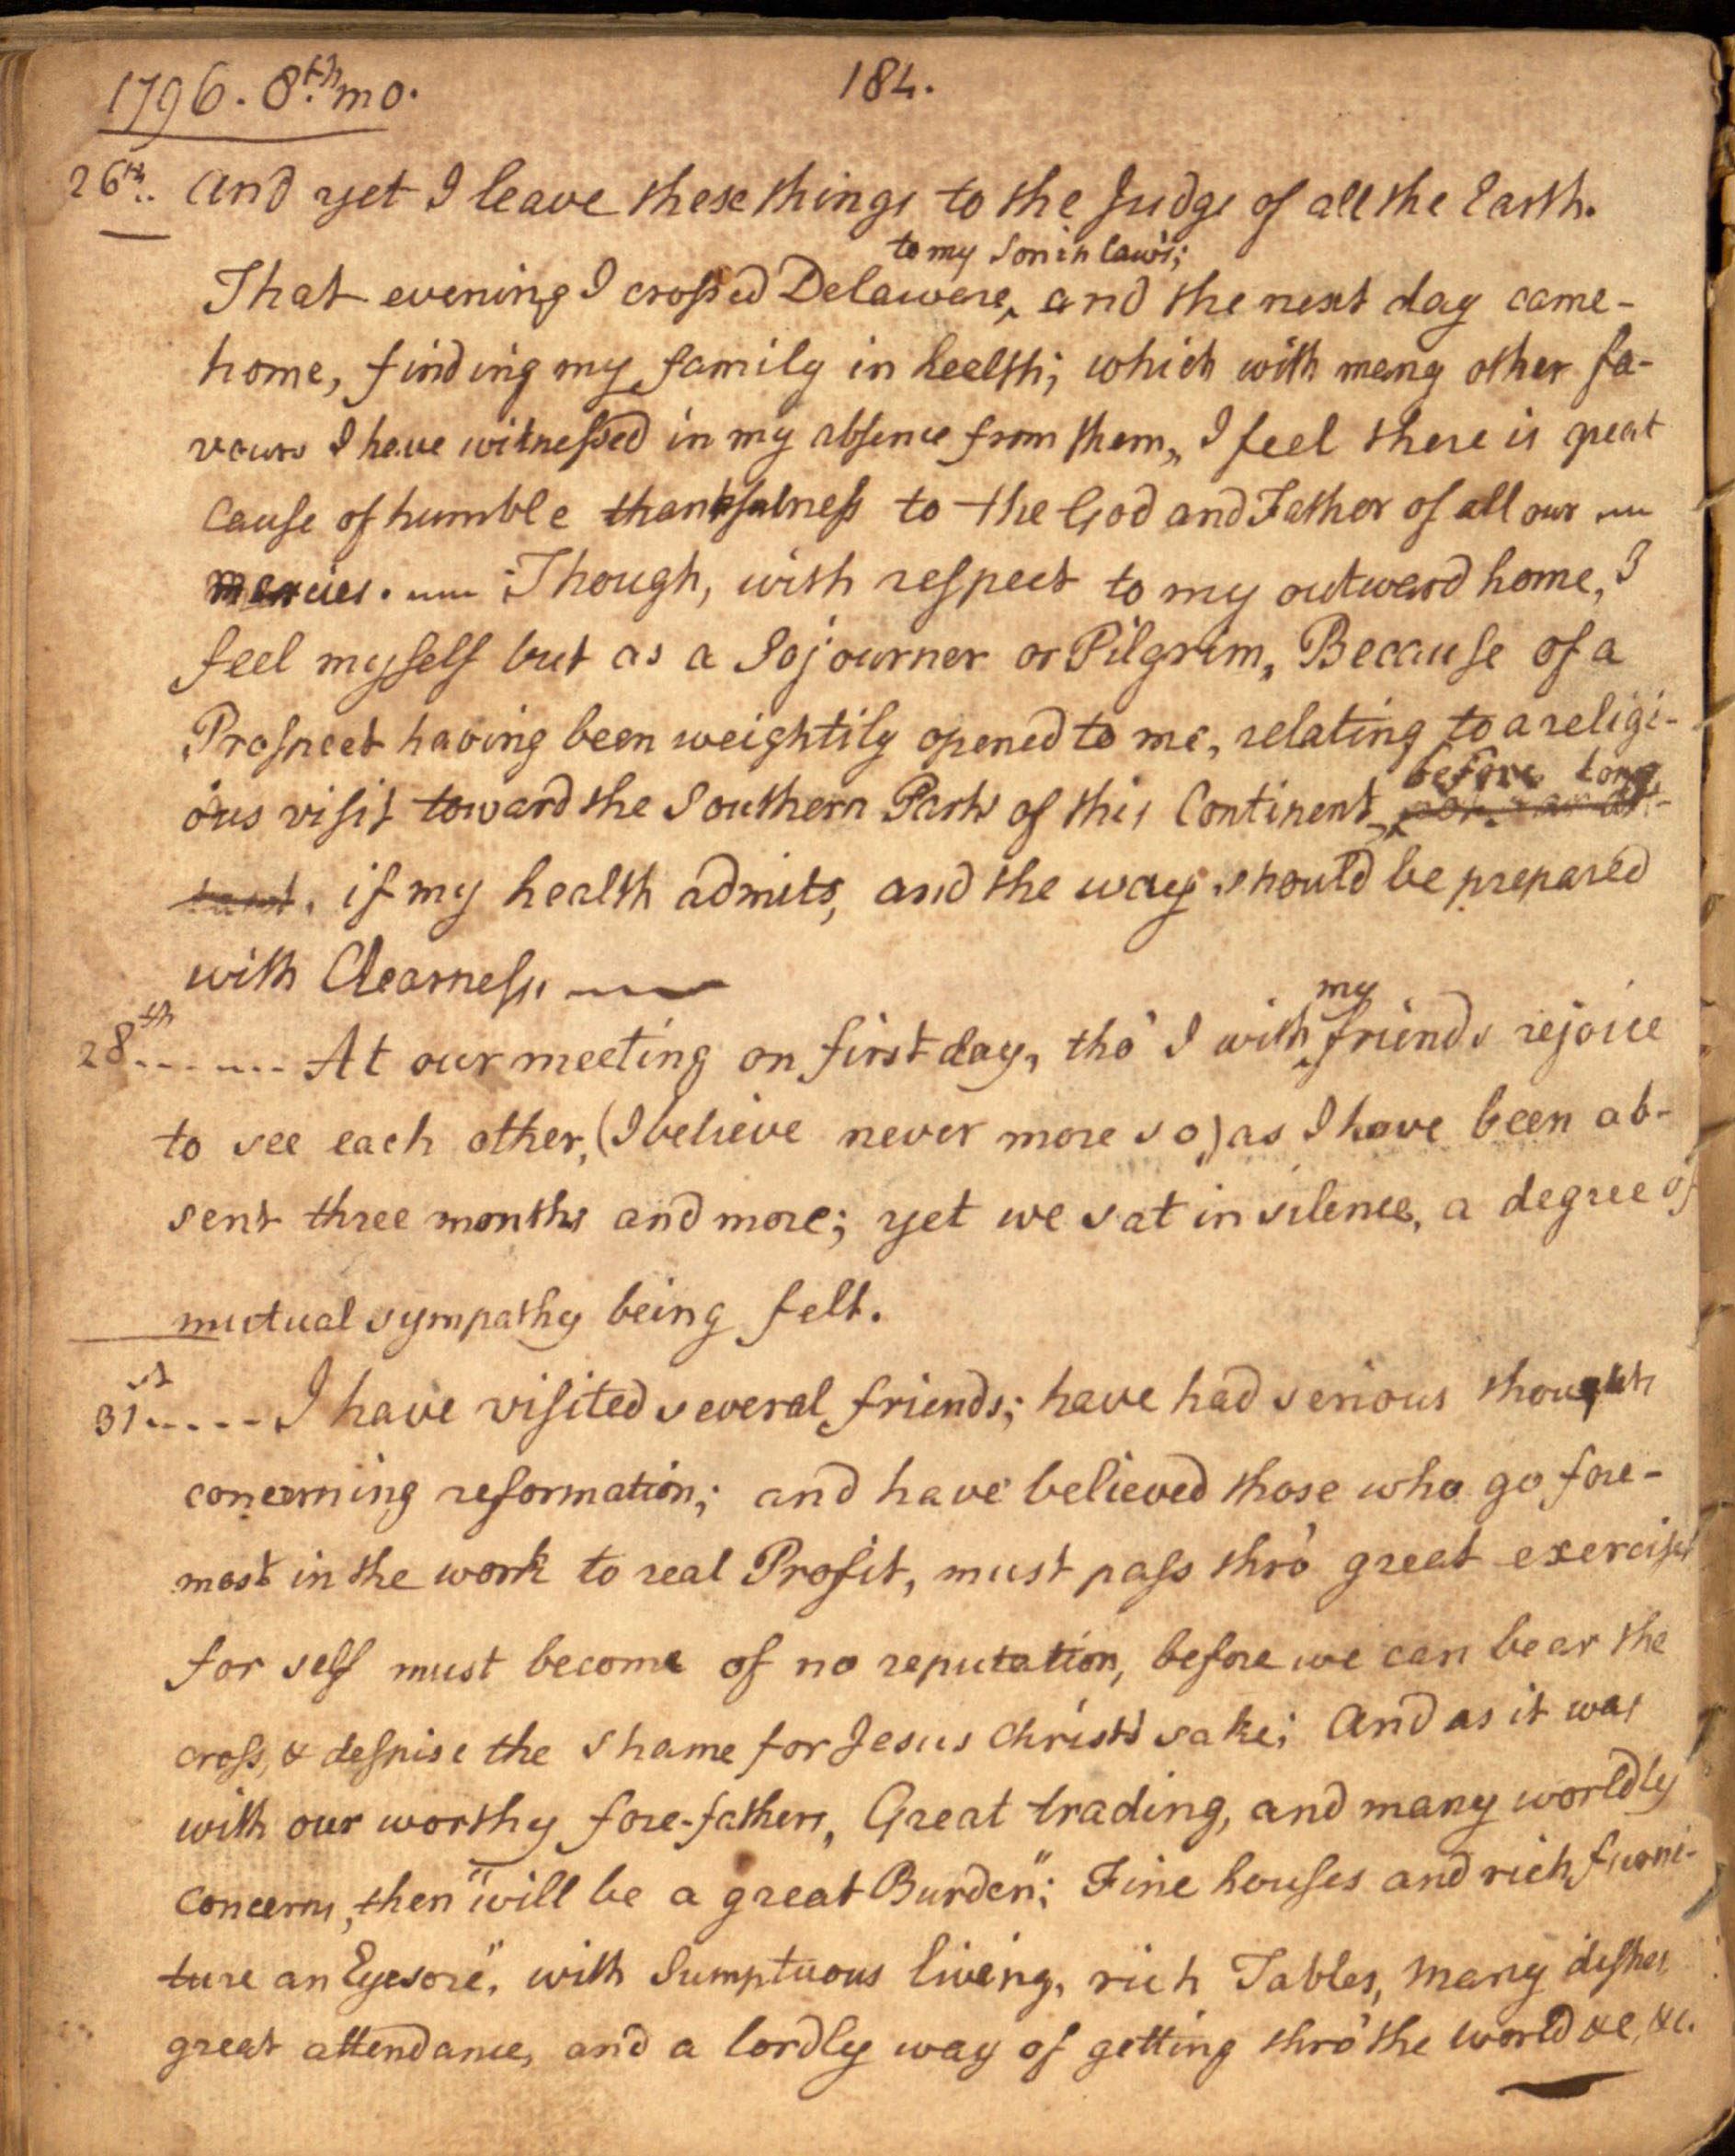 1796. 8th. mo.
184.
26th. And yet I leave these things to the Judge of all the Earth.
to my Son in law's;
That evening I crossed Delaware, and the next day came-
home, finding my family in health; which with many other fa-
vours I have witnessed in my absence from them, I feel there is great
cause of humble thankfulness to the God and Father of all our
mercies. Though, with respect to my outward home, I
feel myself but as a Sojourner or Pilgrim, Because of a
Prospect having been weightily opened to me, relating to a religi-
ous visit toward the Southern Parts of this Continent,
before long
if my health admits, and the way should be prepared
with Clearness.
my
28th At our meeting on first day, tho' I with friends rejoice
to see each other, (I believe never more so,) as I have been ab-
sent three months and more; yet we sat in silence, a degree of
mutual sympathy being felt.
31st I have visited several friends; have had serious thoughts
concerning reformation; and have believed those who go fore-
most in the work to real Profit, must pass thro' great exercises
for self must become of no reputation, before we can bear the
cross, & despise the shame for Jesus Christ's sake; And as it was
with our worthy fore-fathers, Great trading, and many worldly
concerns, then "will be a great Burden"; Fine houses and rich furni-
ture an Eyesore", with Sumptuous living, rich Tables, many dishes
great attendance, and a lordly way of getting thro' the world &c, &c.